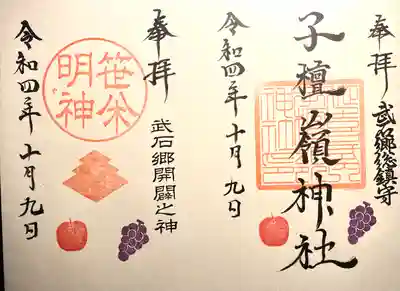 奉拝
武郷総鎮守
子檀嶺神社
令和四年十月九日
奉拝
武石郷開闢之神
笹
明神
令和四年十月九日